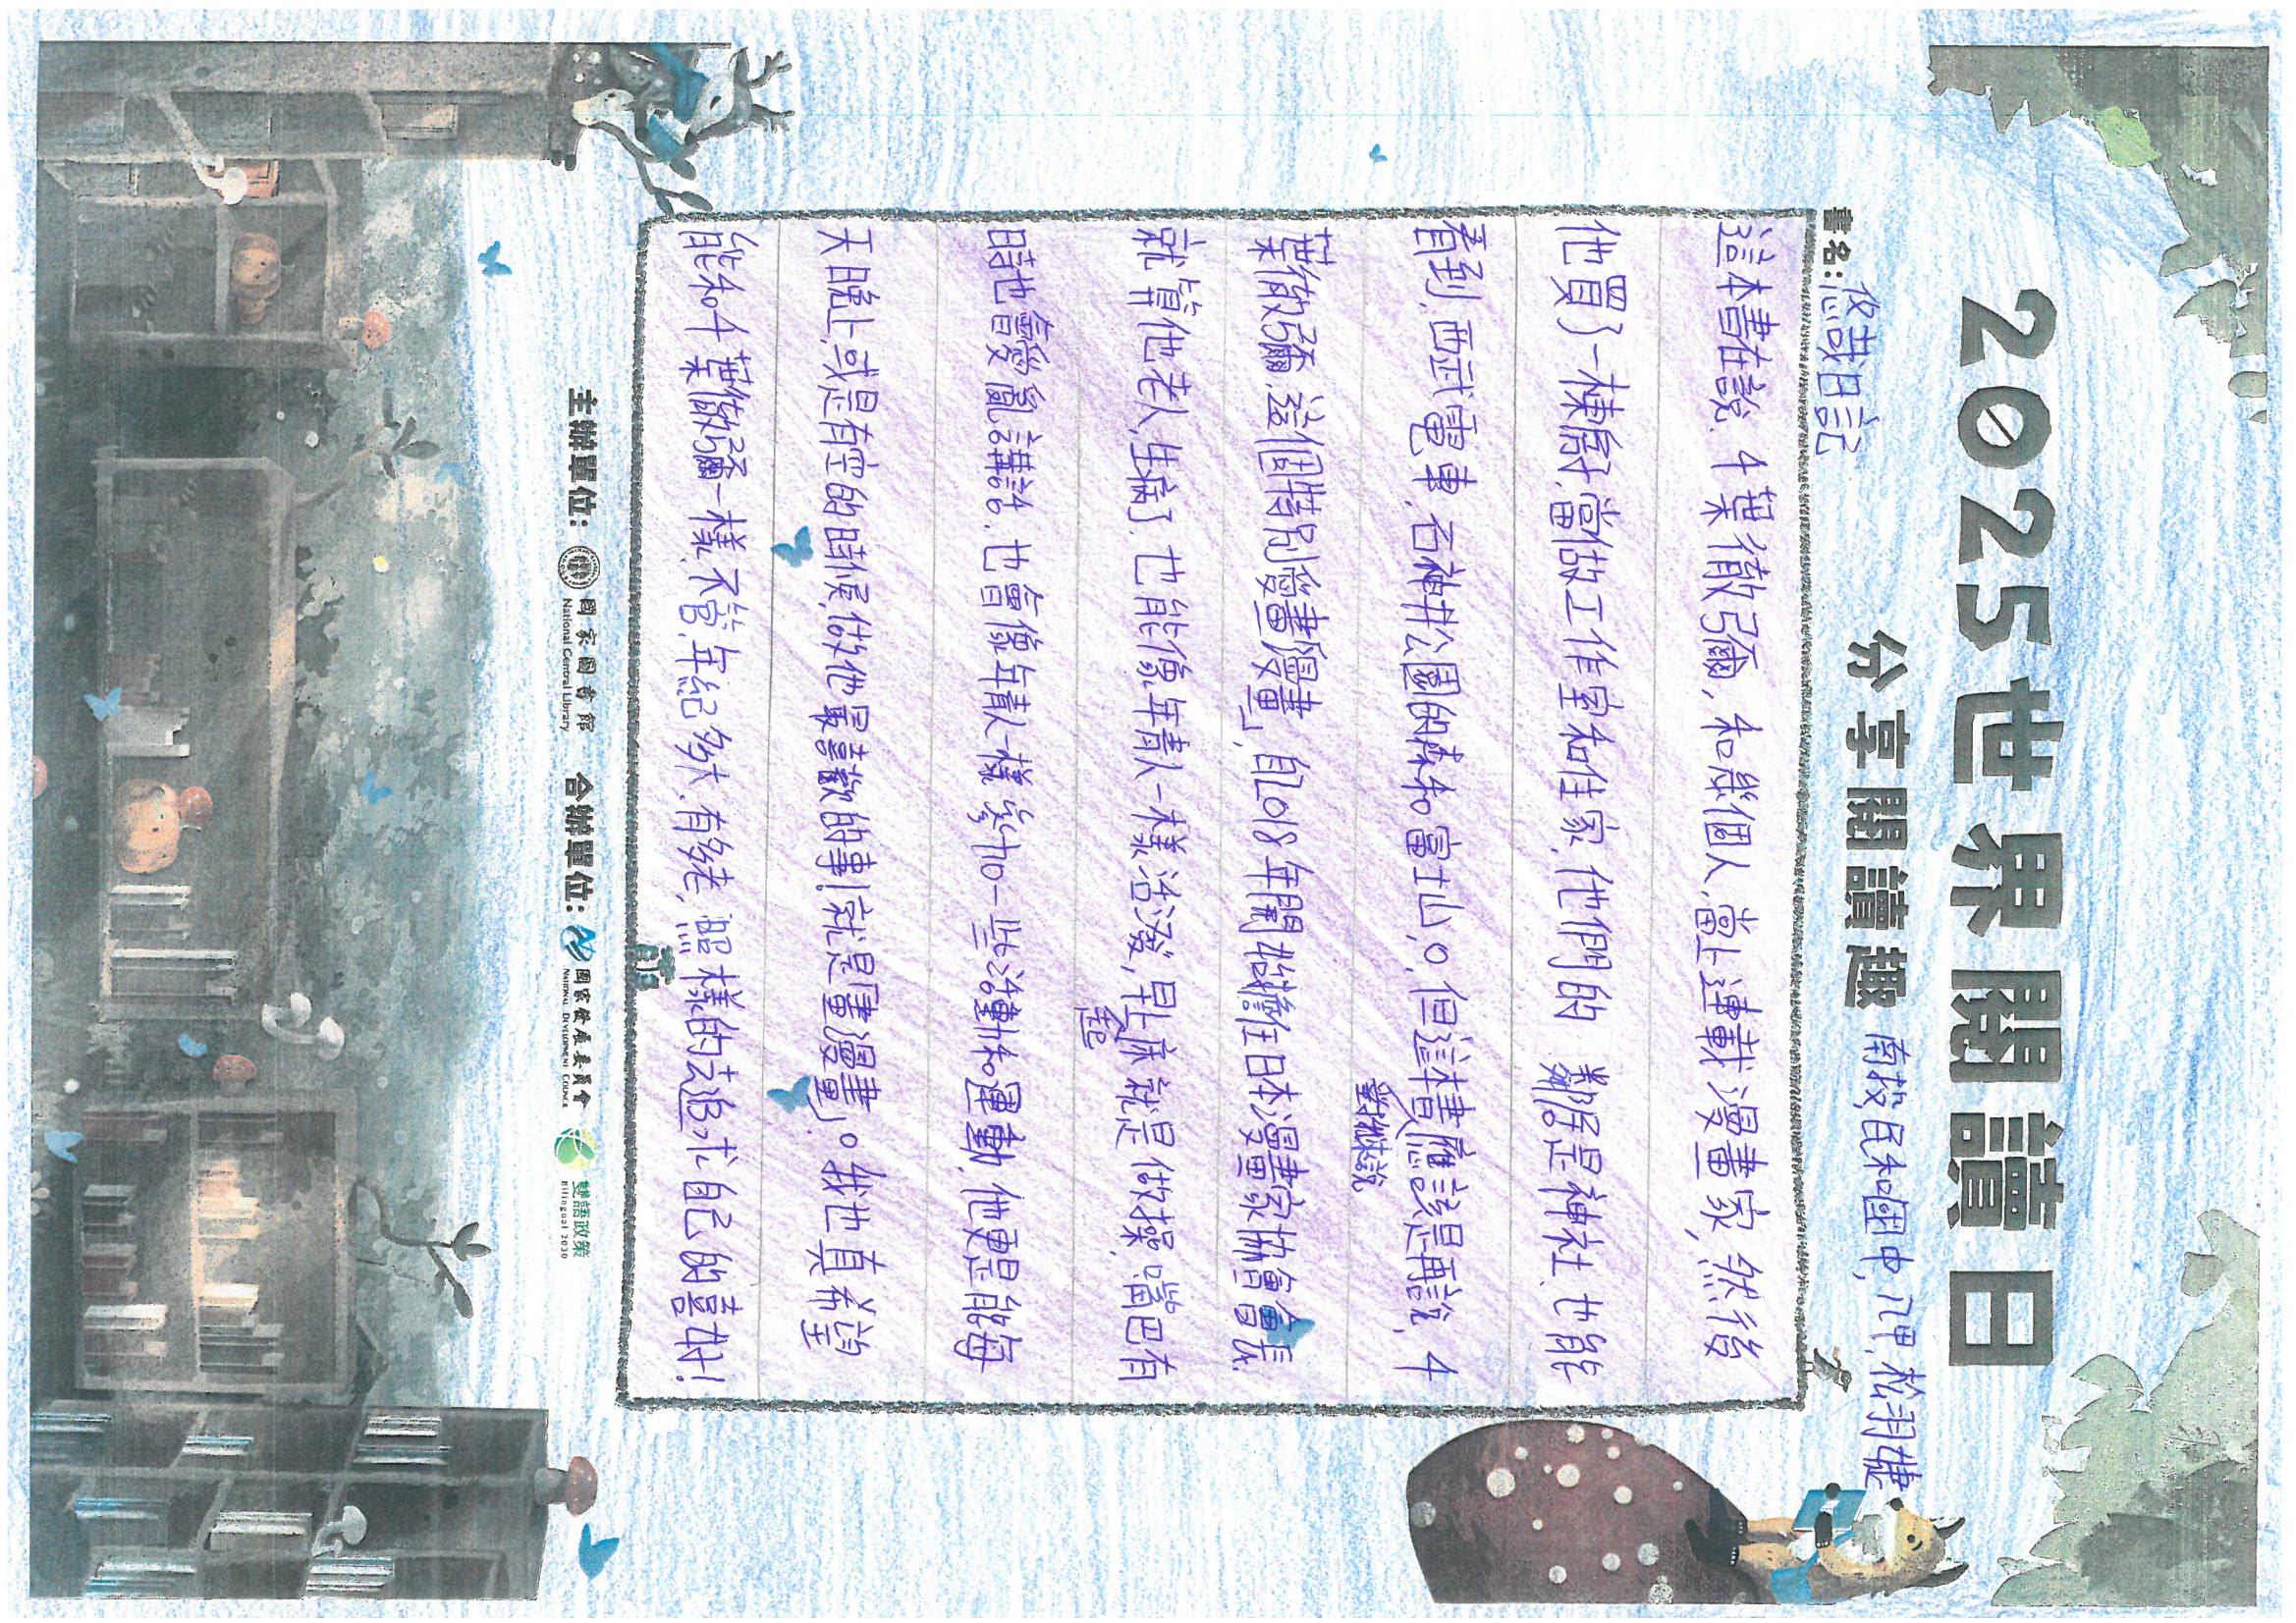 2025世界閱讀日
分享閱讀趣
南投民和國中,八甲,松羽婕
書名:悠哉日記
這本書在說 千葉徹彌,和幾個人,當上連載漫畫家,然後
他買了一棟房子,當做工作室和住家,他們的 鄰居是神社、也能
看到,西武電車、石神井公園的林和富士山。但這準備應該是再說,千
葉徹彌,這個特別愛畫漫畫,自2018年開始擔任日本漫畫家協會會長.
就算他老人,生病了.也能像年青人一樣活潑,早上起床就是做操,嘴巴有
時也會愛亂講話.也會像年青人一樣參加一些活動和運動,他更是能每
天晚上,或是有空的時候,做他最喜歡的事!就是畫漫畫」。我也真希望
能和千葉徹彌一樣,不管,年紀多大.有多老,照樣的去追求自己的喜好!
主辦單位:
國家圖書館
National Central Library
合辦單位:
國家發展委員會
National Development Council
雙語政策
Bilingual 2030